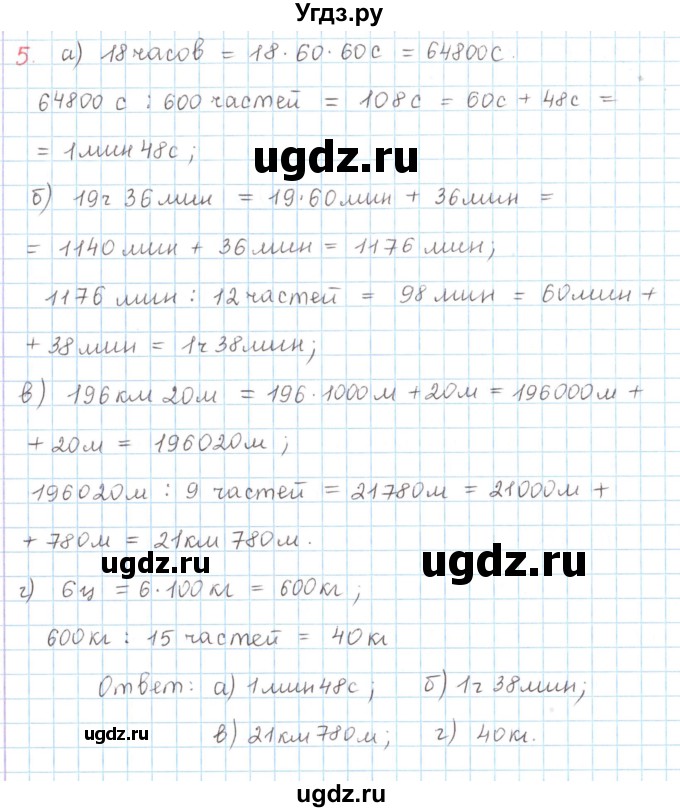 Угдз.ру
5. а) 18 часов = 18·60·60с = 64800с.
64800 с : 600 частей = 108с = 60с + 48с =
= 1мин 48с;
ugdz.ru
б) 19ч 36мин = 19·60мин + 36мин =
= 1140 мин + 36 мин = 1176 мин;
1176 мин : 12 частей = 98 мин = 60мин +
+ 38мин = 1ч 38мин;
в) 196км 20м = 196·1000м + 20м = 196000м +
+ 20м = 196020м;
196020м : 9 частей = 21780м = 21000м +
+ 780м = 21км 780м.
ugdz.ru ugdz.ru
г) 6ц = 6·100кг = 600кг;
600кг : 15 частей = 40кг
Ответ: а) 1мин48с; б) 1ч 38мин;
ugdz.ru в) 21км 780м; г) 40кг.
ugdz.ru